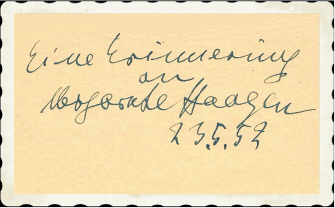 Eine Erinnerung
an
Margarete Haagen
23.5.52